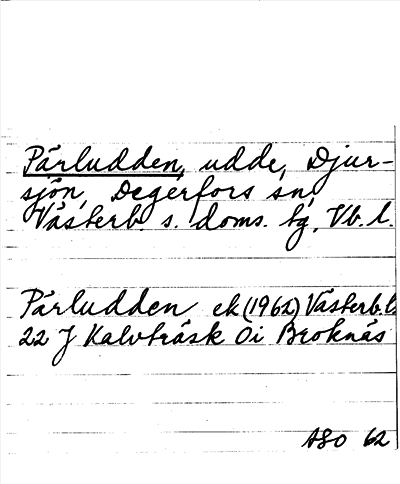 Pärludden, udde, Djur-
sjön, Degerfors sn,
Västerb. s. doms. tg, Vb. l.
Pärludden ek (1962) Västerb. l.
22 J Kalvträsk Oi Broknäs
ASO 62